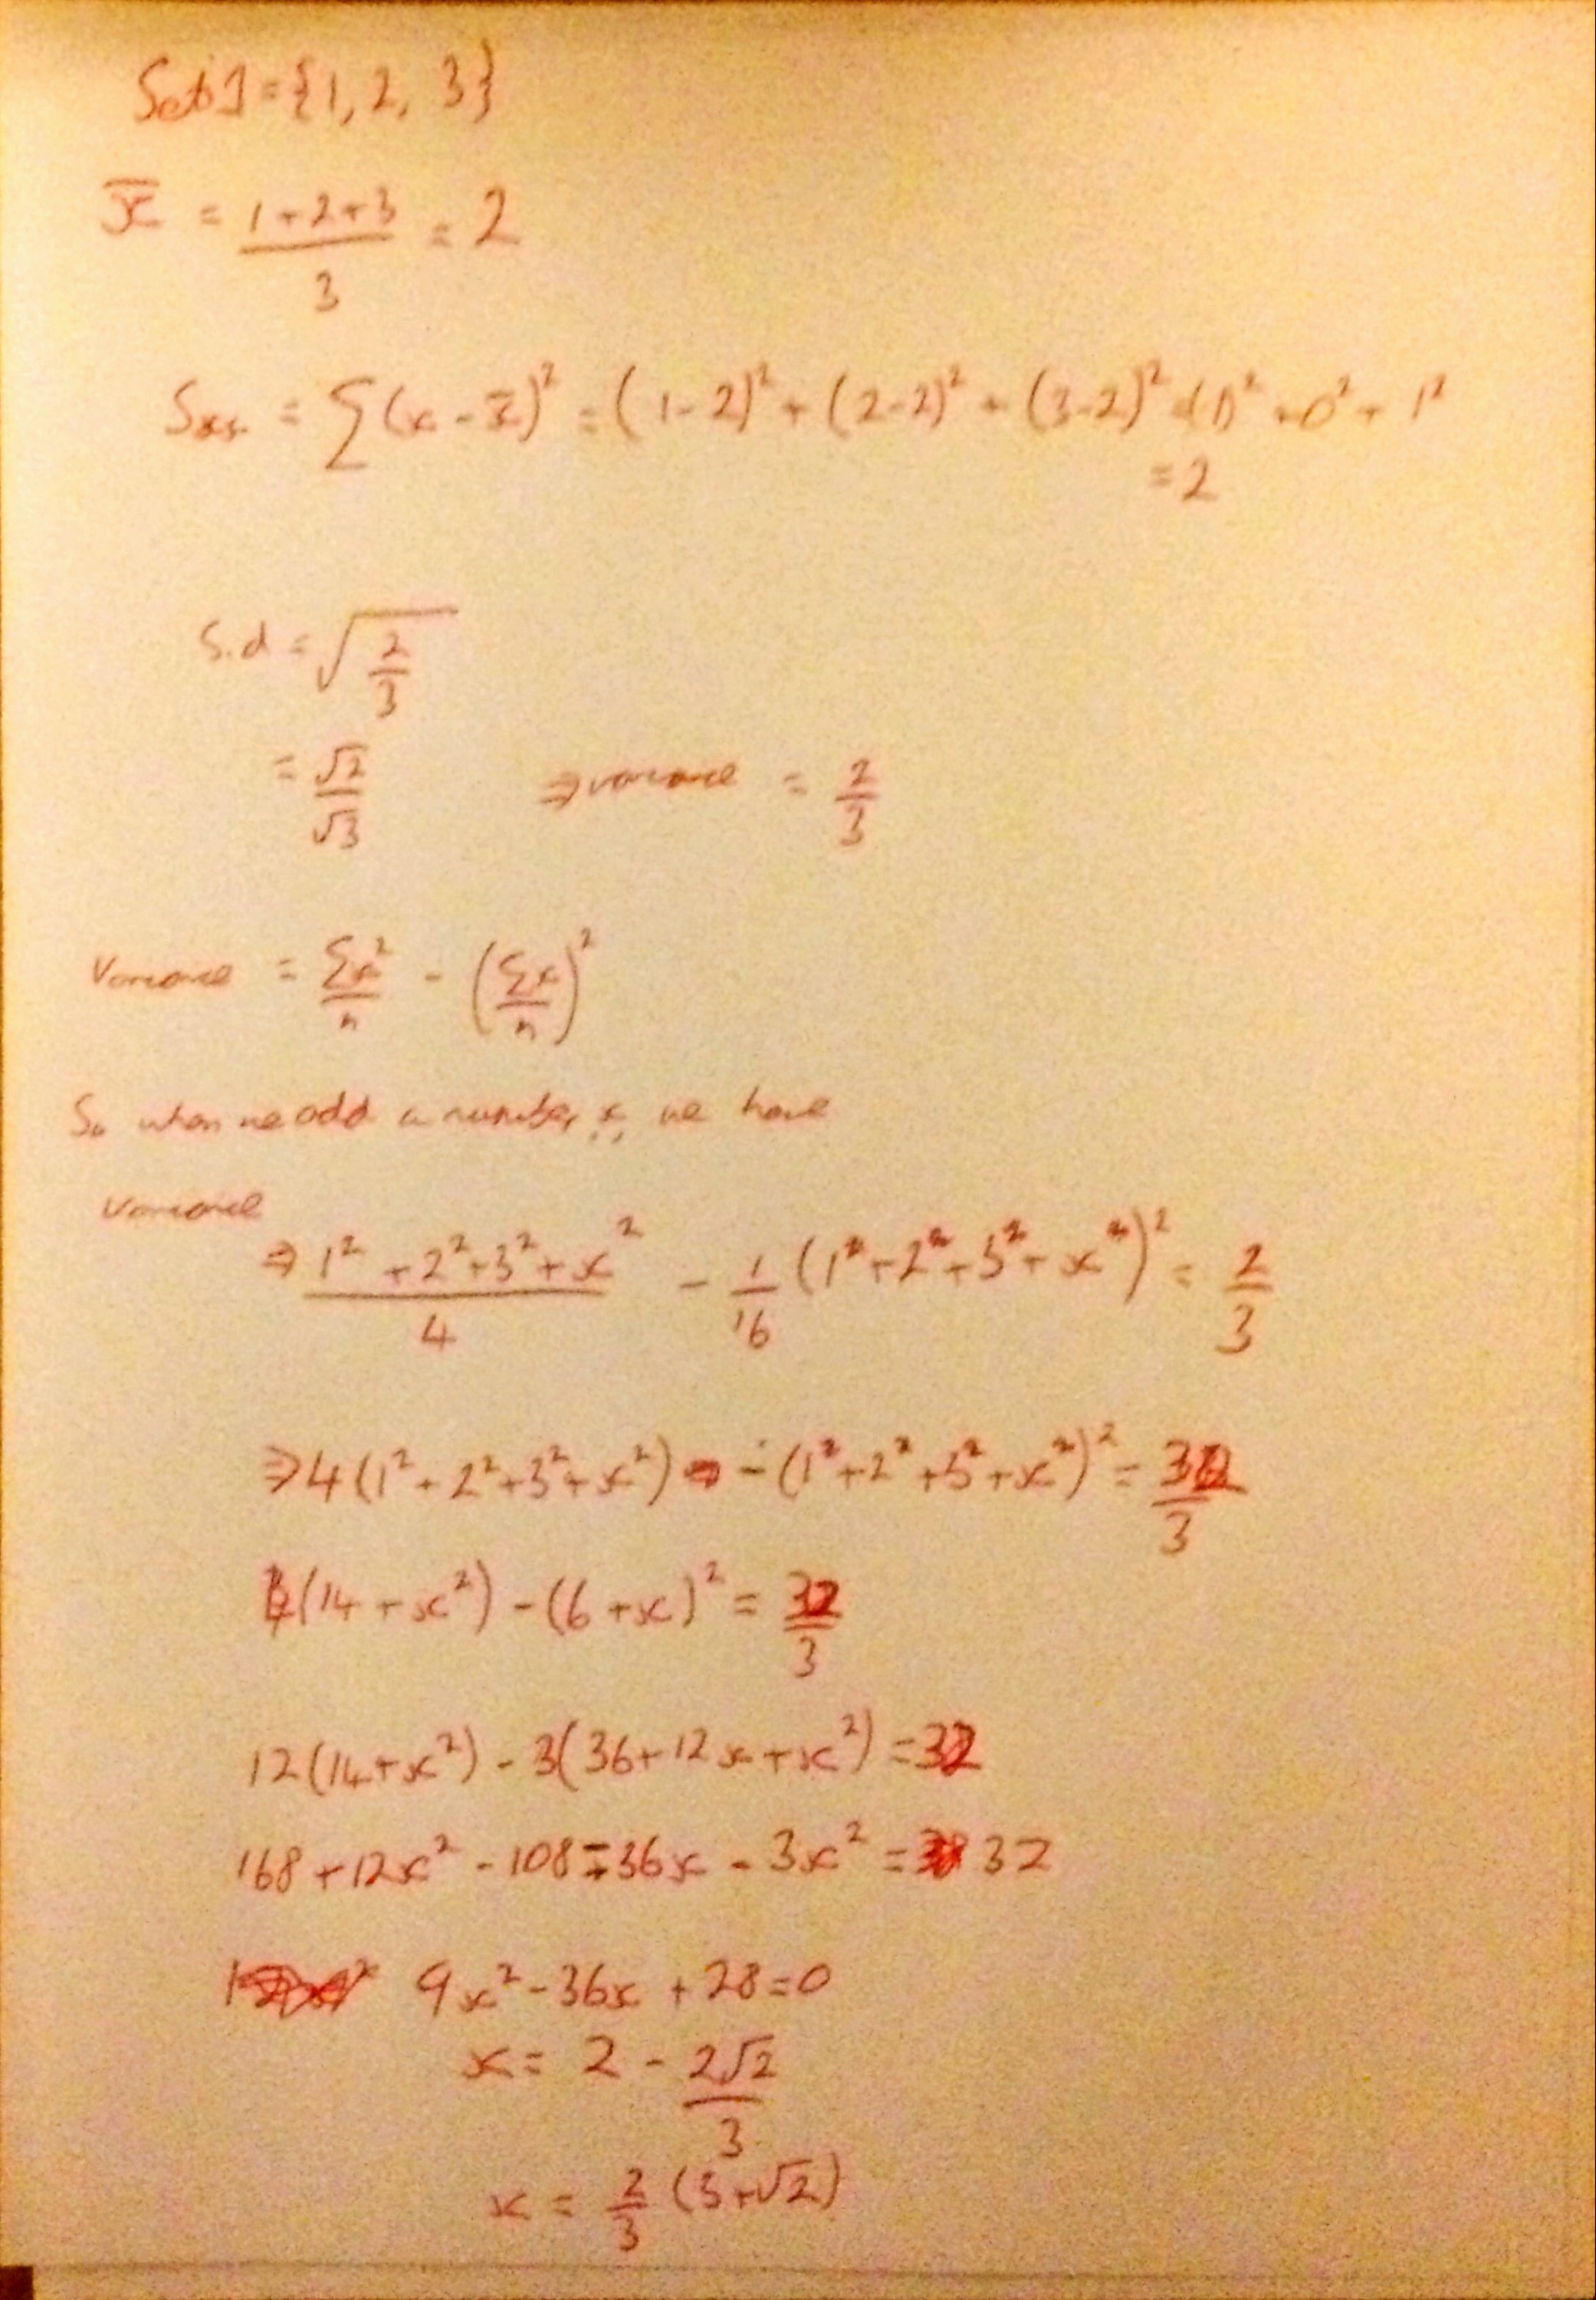 Set 1 = {1, 2, 3}
x̄ = (1+2+3)/3 = 2
Sxx = ∑(x - x̄)² = (1-2)² + (2-2)² + (3-2)² = (1)² + 0² + 1²
= 2
S.d = √(2/3)
= √2/√3 ⇒ variance = 2/3
Variance = ∑x²/n - (∑x/n)²
So when we add a number x, we have
Variance
⇒ (1² + 2² + 3² + x²)/4 - 1/16 (1 + 2 + 3 + x)² = 2/3
⇒ 4(1² + 2² + 3² + x²) - (1 + 2 + 3 + x)² = 32/3
4(14 + x²) - (6 + x)² = 32/3
12(14 + x²) - 3(36 + 12x + x²) = 32
168 + 12x² - 108 - 36x - 3x² = 32
9x² - 36x + 28 = 0
x = 2 - 2√2/3
x = 2/3 (3+√2)